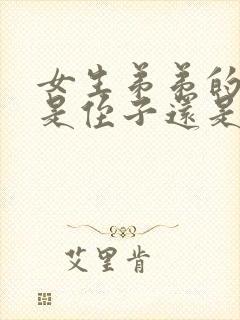 女生弟弟的
是侄子還是
艾里肯